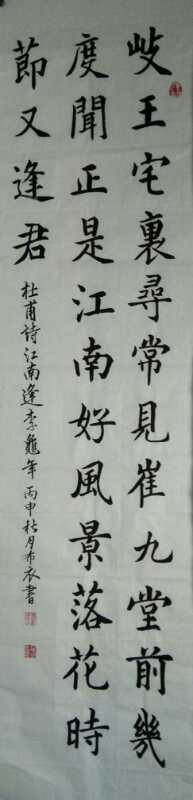 歧王宅裏尋常見崔九堂前幾
度聞正是江南好風景落花時
節又逢君
杜甫詩江南逢李龜年丙申秋月布衣書